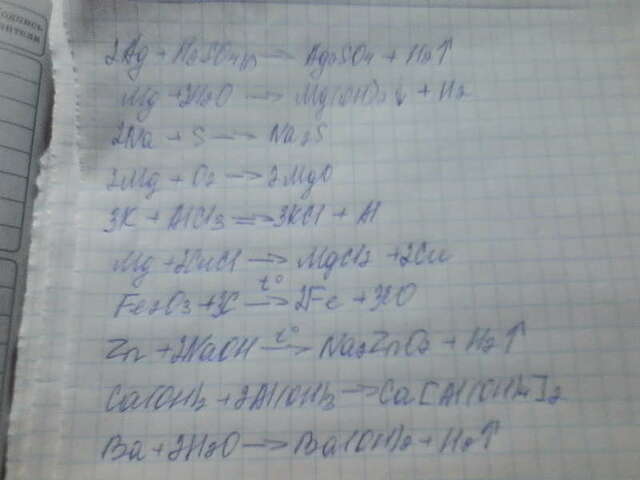 одпись
дителя
2Ag + H₂SO₄ → Ag₂SO₄ + H₂↑
Mg + 2H₂O → Mg(OH)₂↓ + H₂
2Na + S → Na₂S
2Mg + O₂ → 2MgO
3K + AlCl₃ → 3KCl + Al
Mg + 2CuCl → MgCl₂ + 2Cu
Fe₂O₃ + 3C t°→ 2Fe + 3CO
Zn + 2NaOH t°→ Na₂ZnO₂ + H₂↑
Ca(OH)₂ + 2Al(OH)₃ → Ca[Al(OH)₄]₂
Ba + 2H₂O → Ba(OH)₂ + H₂↑